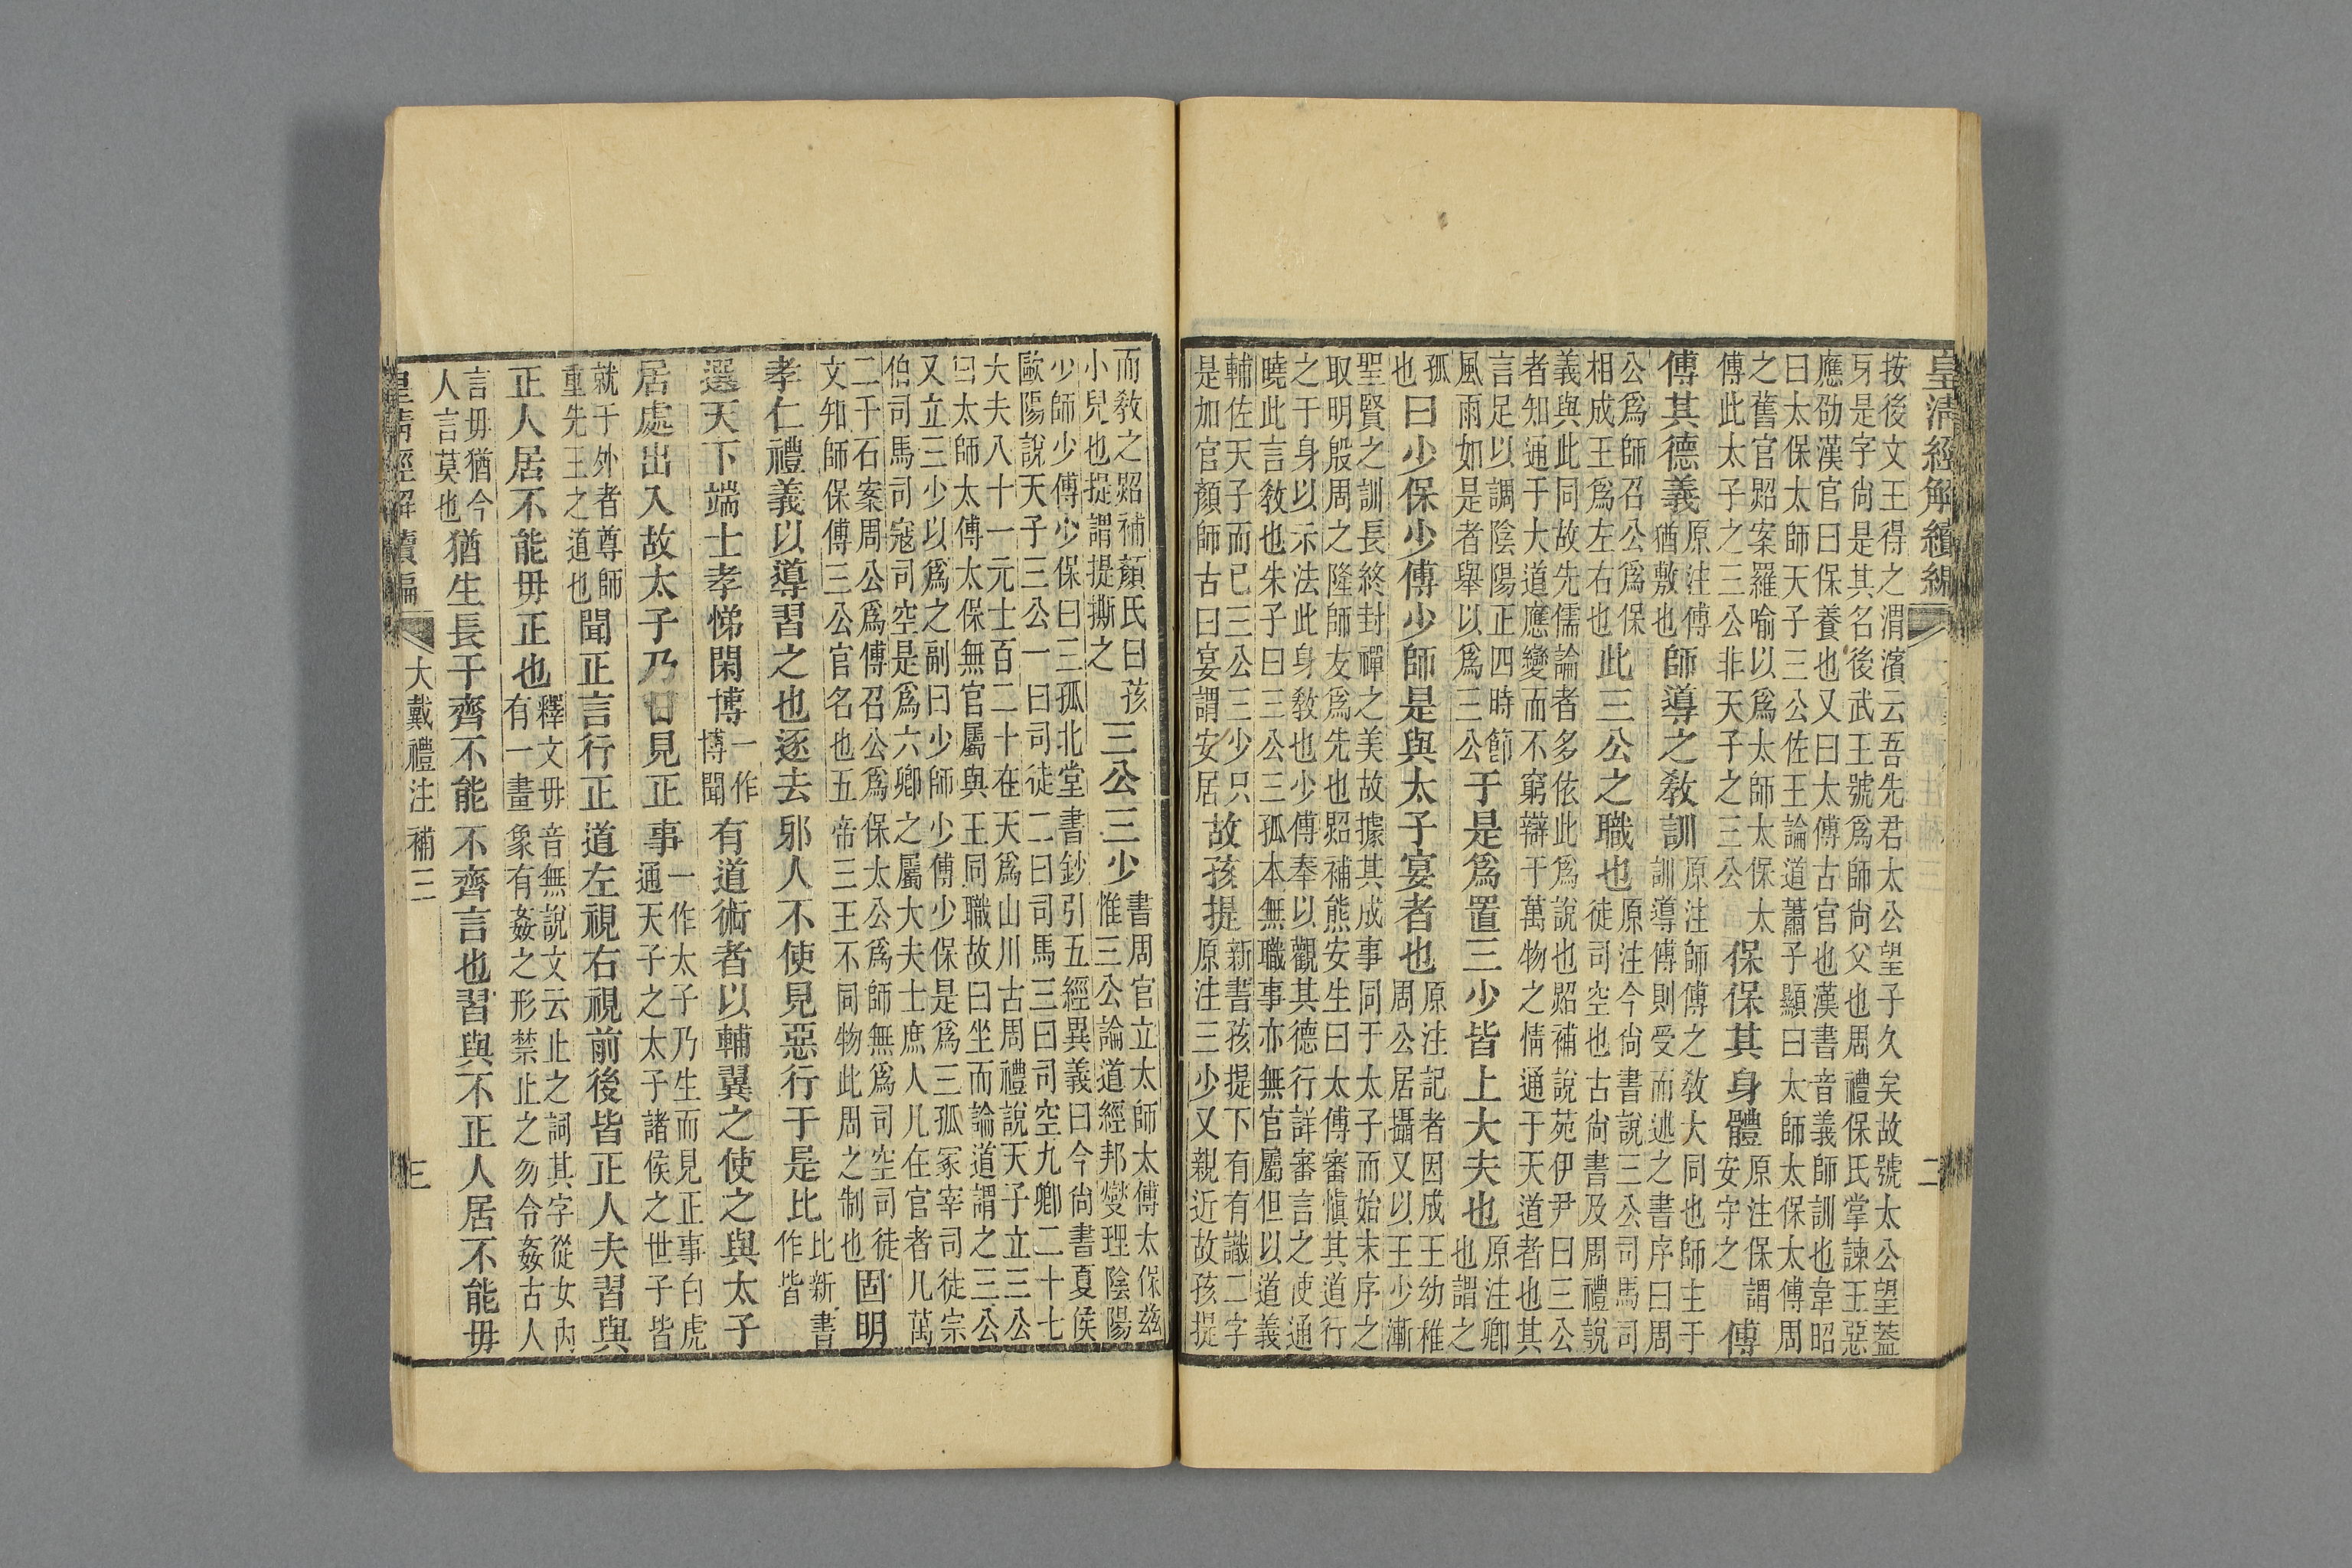 皇清經解續編　二
按後文王得之渭濱云吾先君太公望子久矣故號太公望蓋
牙是字尚是其名後武王號爲師尚父也周禮保氏掌諫王惡
應劭漢官曰保養也又曰太傅古官也漢書音義師訓也韋昭
曰太保太師天子三公佐王論道蕭子顯曰太師太保太傅周
之舊官炤案羅喻以爲太師太保太傅此太子之三公非天子之三公保保其身體原注保謂安守之傅
傅其德義原注傅猶敷也師導之敎訓原注師傅之敎大同也師主于訓導傅則受而述之書序曰周
公爲師召公爲保相成王爲左右也此三公之職也原注今尚書說三公司馬司徒司空也古尚書及周禮說
義與此同故先儒論者多依此爲說也炤補說苑伊尹曰三公
者知通于大道應變而不窮辯于萬物之情通于天道者也其
言足以調陰陽正四時節風雨如是者舉以爲三公于是爲置三少皆上大夫也原注卿也謂之
孤也曰少保少傅少師是與太子宴者也原注記者因成王幼稚周公居攝又以王少漸
聖賢之訓長終封禪之美故據其成事同于太子而始末序之
取明殷周之隆師友爲先也炤補熊安生曰太傅審愼其道行
之于身以示法此身敎也少傅奉以觀其德行詳審言之使通
曉此言敎也朱子曰三公三孤本無職事亦無官屬但以道義
輔佐天子而已三公三少只是加官顏師古曰宴謂安居故孩提新書孩提下有有識二字原注三少又親近故孩提
而敎之炤補顏氏曰孩小兒也提謂提撕之三公三少書周官立太師太傅太保茲惟三公論道經邦燮理陰陽
少師少傅少保曰三孤北堂書鈔引五經異義曰今尚書夏侯
歐陽說天子三公一曰司徒二曰司馬三曰司空九卿二十七
大夫八十一元士百二十在天爲山川古周禮說天子立三公
曰太師太傅太保無官屬與王同職故曰坐而論道謂之三公
又立三少以爲之副曰少師少傅少保是爲三孤冢宰司徒宗
伯司馬司寇司空是爲六卿之屬大夫士庶人凡在官者凡萬
二千石案周公爲傅召公爲保太公爲師無爲司空司徒
文知師保傅三公官名也五帝三王不同物此周之制也固明
孝仁禮義以導習之也逐去邪人不使見惡行于是比比新書作皆
選天下端士孝悌閑博一作博聞有道術者以輔翼之使之與太子
居處出入故太子乃目見正事一作太子乃生而見正事白虎通天子之太子諸侯之世子皆
就于外者尊師重先王之道也聞正言行正道左視右視前後皆正人夫習與
正人居不能毋正也釋文毋音無說文云止之詞其字從女內有一畫象有姦之形禁止之勿令姦古人
言毋猶今人言莫也猶生長于齊不能不齊言也習與不正人居不能毋
皇清經解續編　大戴禮注補三　三